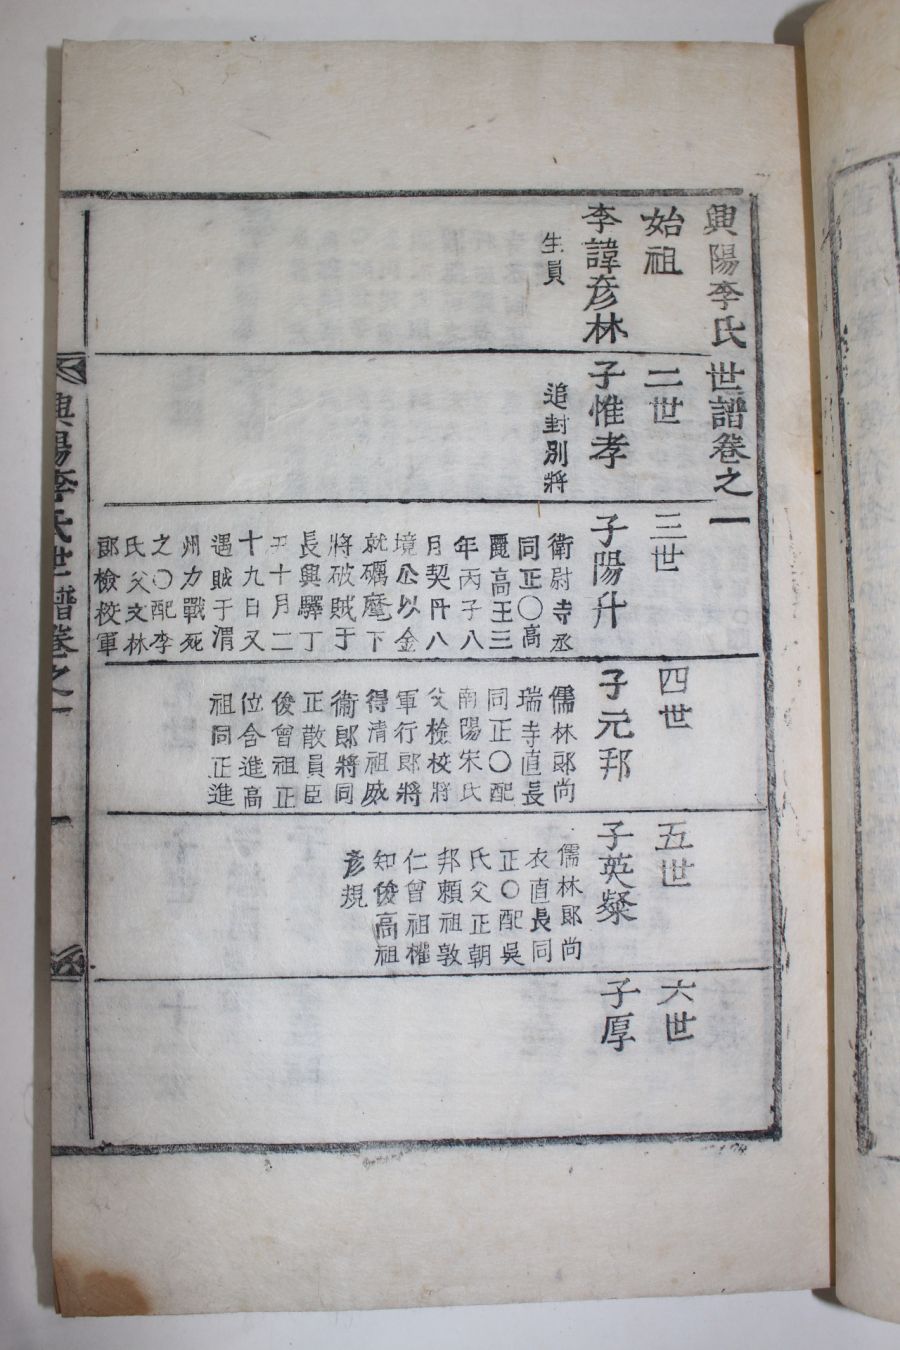 興陽李氏世譜卷之一
始祖
李諱彦林
生員
二世
子惟孝
追封別將
三世
子陽升
衛尉寺丞
同正〇高
麗高王三
年丙子八
月契丹八
境公以金
就礪麾下
將破賊于
長興驛丁
丑十月二
十九日又
遇賊于渭
州力戰死
之〇配李
氏父文林
郎檢校軍
四世
子元邦
儒林郎尚
瑞寺直長
同正〇配
南陽宋氏
父檢校將
軍行郎將
得清祖威
衛郎將同
正散員臣
俊曾祖正
位合進高
祖同正進
五世
子英粲
儒林郎尚
衣直長同
正〇配吳
氏父正朝
邦賴祖敦
仁曾祖權
知俊高祖
彦規
六世
子厚
興陽李氏世譜卷之一
一